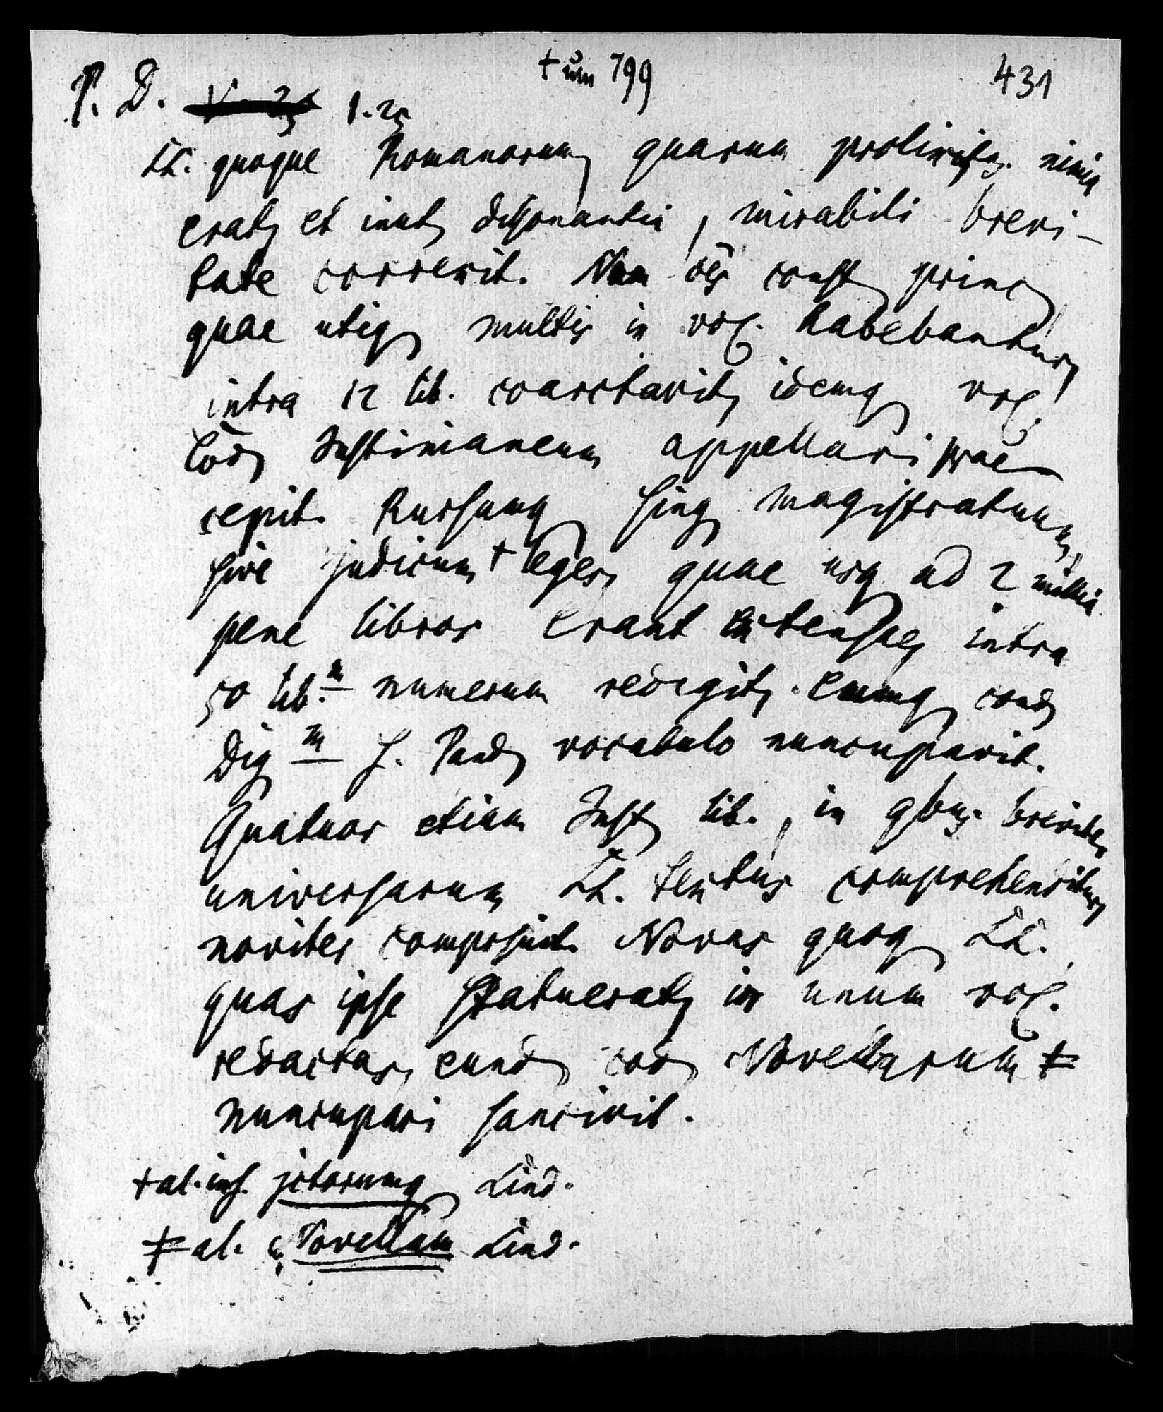 † um 799
431
P. D. V. 25 1. 25
LL. quoque Romanorum quarum prolixitas nimia
erat et inut dissonantia, mirabili brevi-
tate correxit. Nam oēs const princ
quae utiq multis in vol. habebantur
intra 12 lib. coarctavit idemq vol.
Cōd Justinianeum appellari prae-
cepit. Rursumq sing magistratuum
sive judicum † leges, quae usq ad 2 millia
pene libros erant extensae intra
50 lib.m numerum redegit. eumq cod
Digm s. Pand vocabulo nuncupavit.
Quatuor etiam Inst lib., in qbus breviter
universarum LL. textus comprehenditur
noviter composuit. Novas quoq LL.
quas ipse statuerat in unum vol.
redactas, eund cod Novellarum ‡
nuncupari sancivit.
† al. ins. jctorumq Lind.
‡ al. Novellam Lind.